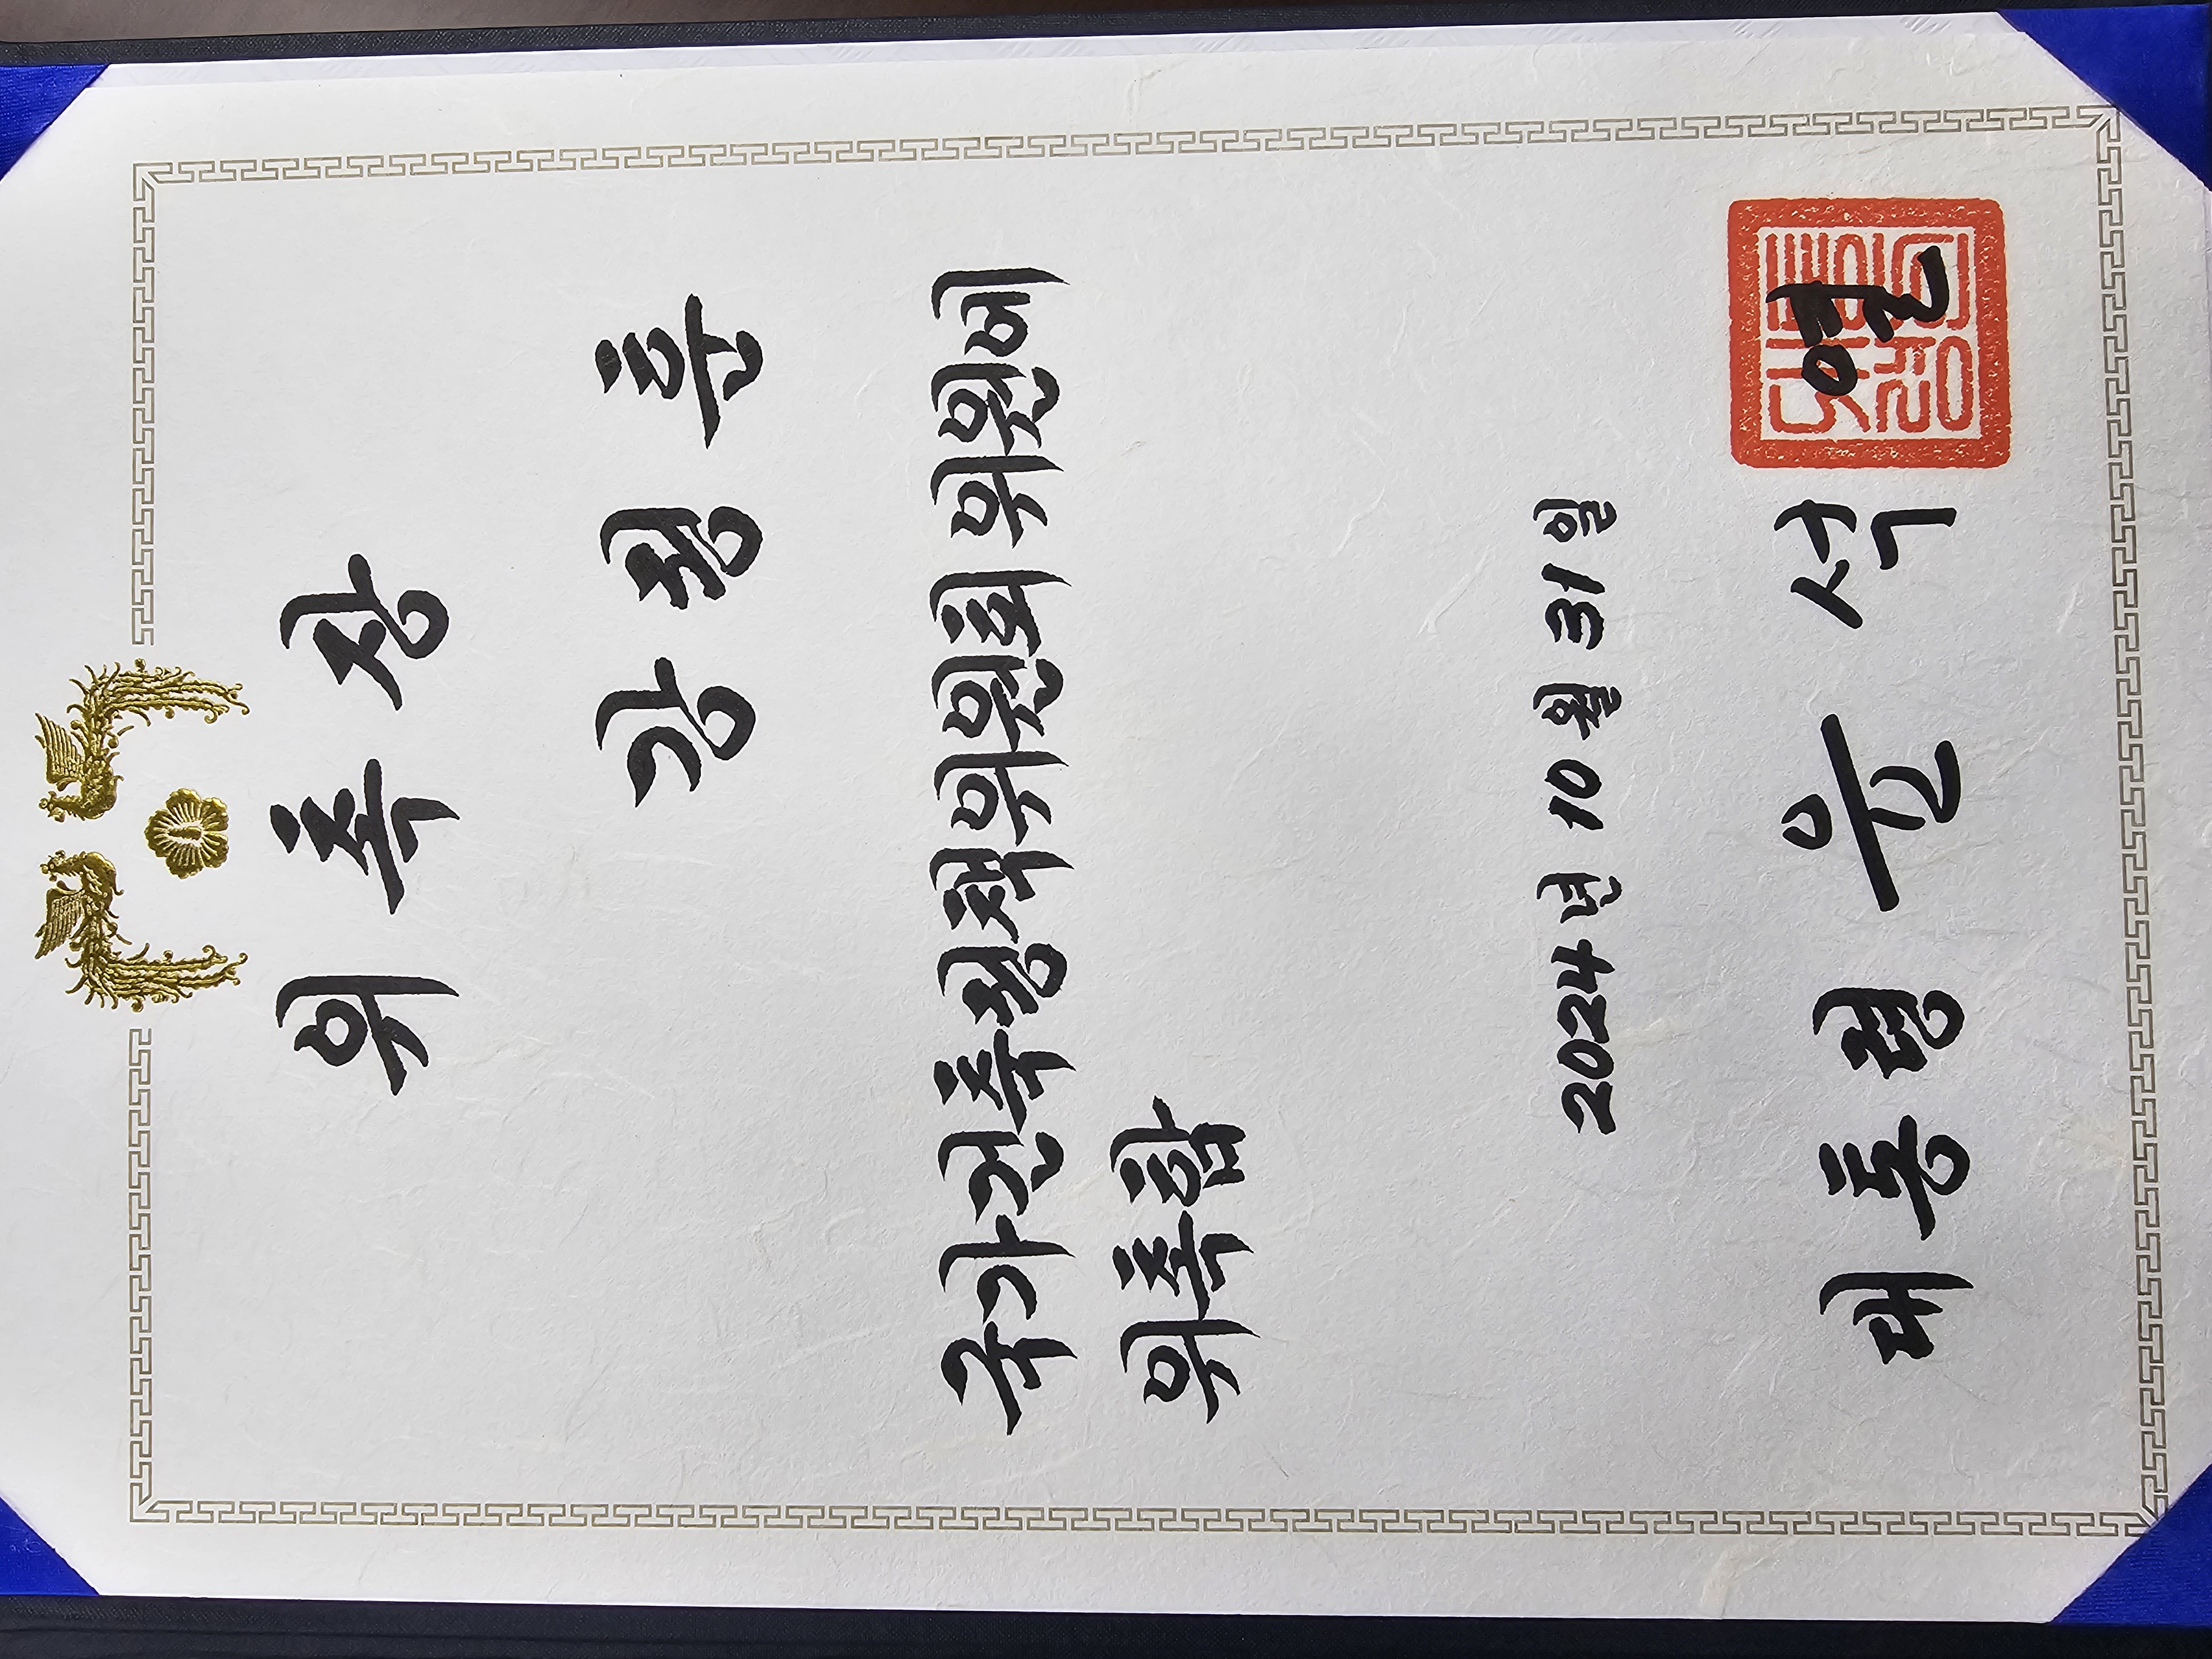 위 촉 장
강 정 훈
국가건축정책위원회 위원에
위촉함
2024년 10월 31일
대 통 령 윤 석 열